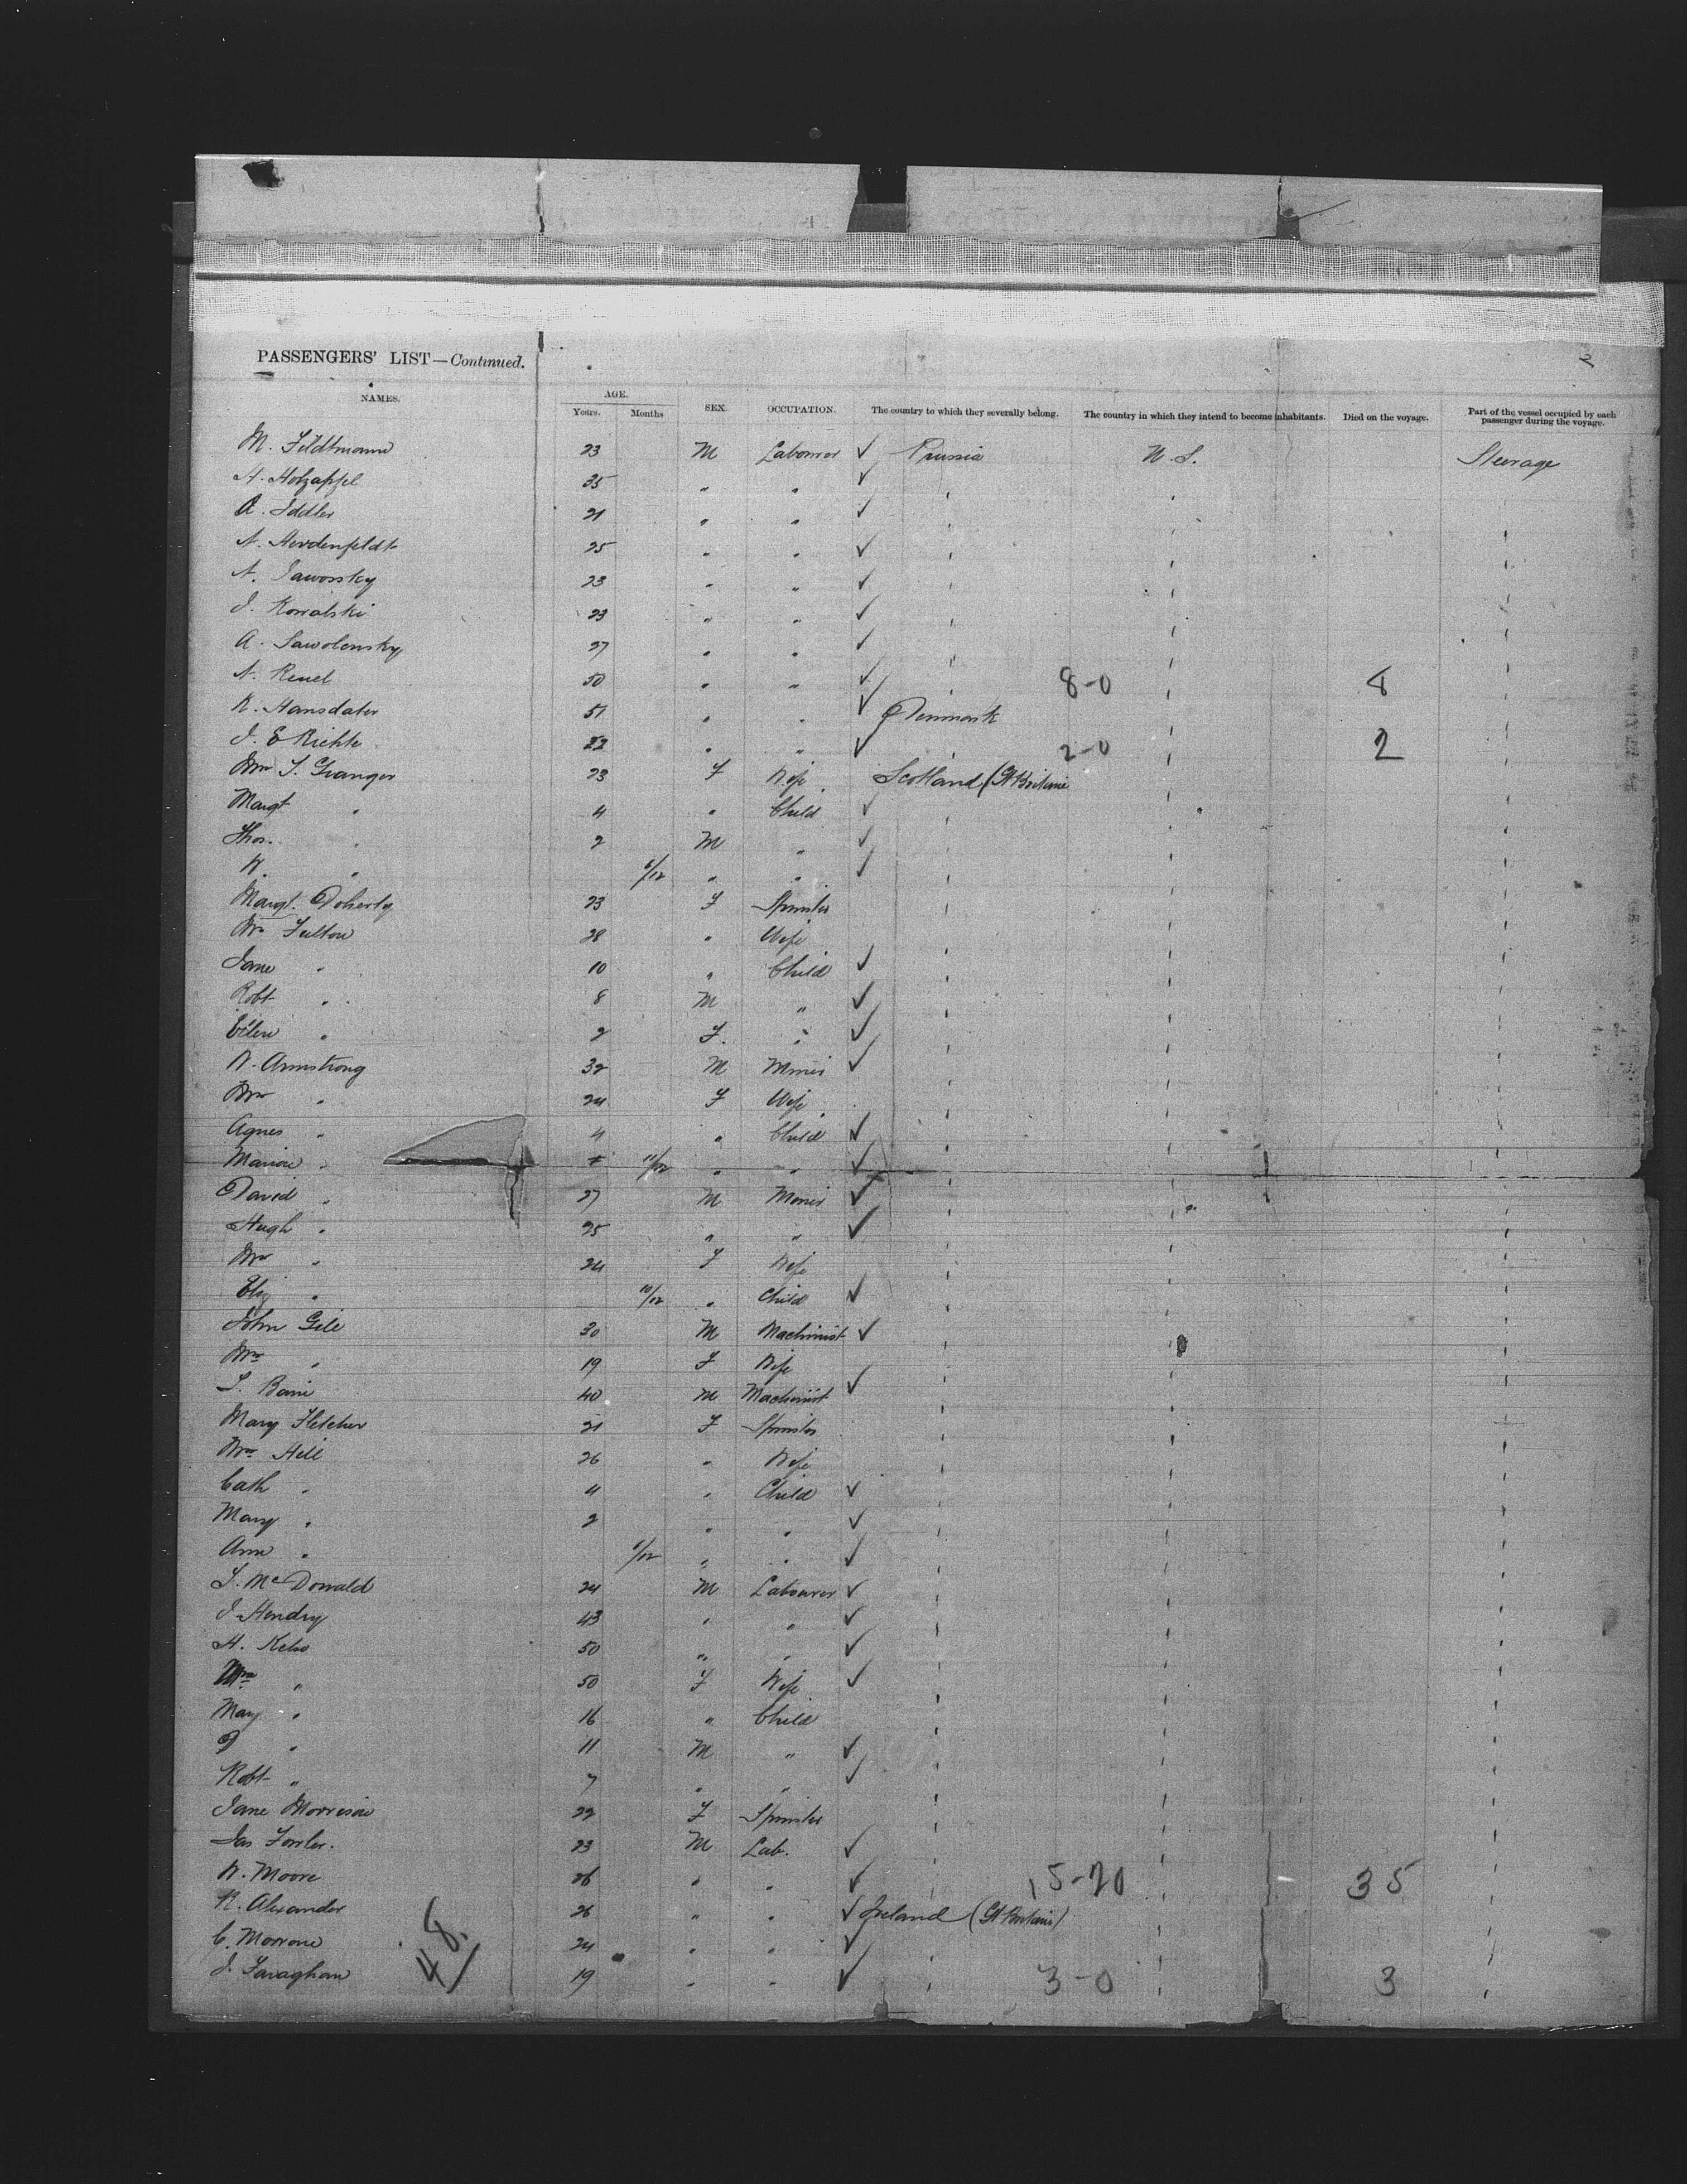 2
PASSENGERS' LIST—Continued.
NAMES. AGE. Years. Months SEX. OCCUPATION. The country to which they severally belong. The country in which they intend to become inhabitants. Died on the voyage. Part of the vessel occupied by each passenger during the voyage.
M. Fildtmann 23 M Labourer ✓ Prussia U.S. Steerage
H. Holzapfel 35 " " ✓ " " "
A. Iddler 21 " " ✓ " " "
A. Herdenfeldt 25 " " ✓ " " "
A. Jaworsky 23 " " ✓ " " "
J. Kowalski 23 " " ✓ " " "
A. Sawolensky 27 " " ✓ " " "
A. Revel 50 " " ✓ " 8-0 " 8 "
K. Hansdater 51 " " ✓ Denmark " "
J. E Richte 22 " " ✓ " 2-0 " 2 "
Mrs T. Granger 23 F Wife Scotland (Gt Britain " "
Margt " 4 " Child ✓ " " "
Thos. " 2 M " ✓ " " "
W. " 6/12 " " ✓ " " "
Margt. Doherty 23 F Spinster " " "
Mrs Fulton 28 " Wife " " "
Jane " 10 " Child ✓ " " "
Robt " 8 M " ✓ " " "
Ellen " 2 F. " ✓ " " "
W. Armstrong 32 M Miner ✓ " " "
Mrs " 24 F Wife " " "
Agnes " 4 " Child ✓ " " "
Marion " 11/12 " " ✓ " " "
David " 27 M Miner ✓ " " "
Hugh " 25 " " ✓ " " "
Mrs " 24 F Wife " " "
Eliz " 10/12 " Child ✓ " " "
John Gill 30 M Machinist ✓ " " "
Mrs " 19 F Wife " " "
T. Bain 40 M Machinist ✓ " " "
Mary Fletcher 21 F Spinster " " "
Mrs Hill 26 " Wife " " "
Cath " 4 " Child ✓ " " "
Mary " 2 " " ✓ " " "
Ann " 6/12 " " ✓ " " "
T. McDonald 24 M Labourer ✓ " " "
J Hendry 43 " " ✓ " " "
H. Kelso 50 " " ✓ " " "
Mrs " 50 F Wife ✓ " " "
May " 16 " Child " " "
D " 11 M " ✓ " " "
Robt " 7 " " ✓ " " "
Jane Morrison 22 F Spinster " " "
Jas Fowler. 23 M Lab. ✓ " " "
W. Moore 26 " " ✓ " 15-20 " 35 "
R. Alexander 26 " " ✓ Ireland (Gt Britain) " "
C. Morrone 24 " " ✓ " " "
J. Favaghan 19 " " ✓ " 3-0 " 3 "
48